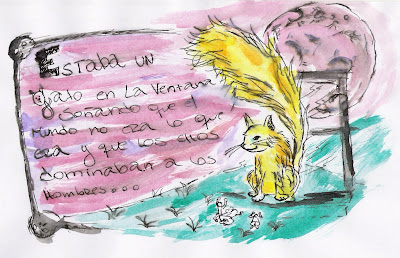 Estaba un
gato en La Ventana
Soñando que el
mundo no era lo que
era y que los gatos
dominaban a los
hombres...